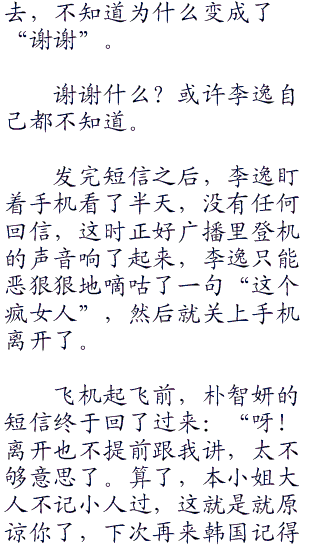 去，不知道为什么变成了
“谢谢”。
谢谢什么？或许李逸自
己都不知道。
发完短信之后，李逸盯
着手机看了半天，没有任何
回信，这时正好广播里登机
的声音响了起来，李逸只能
恶狠狠地嘀咕了一句“这个
疯女人”，然后就关上手机
离开了。
飞机起飞前，朴智妍的
短信终于回了过来：“呀！
离开也不提前跟我讲，太不
够意思了。算了，本小姐大
人不记小人过，这就是就原
谅你了，下次再来韩国记得